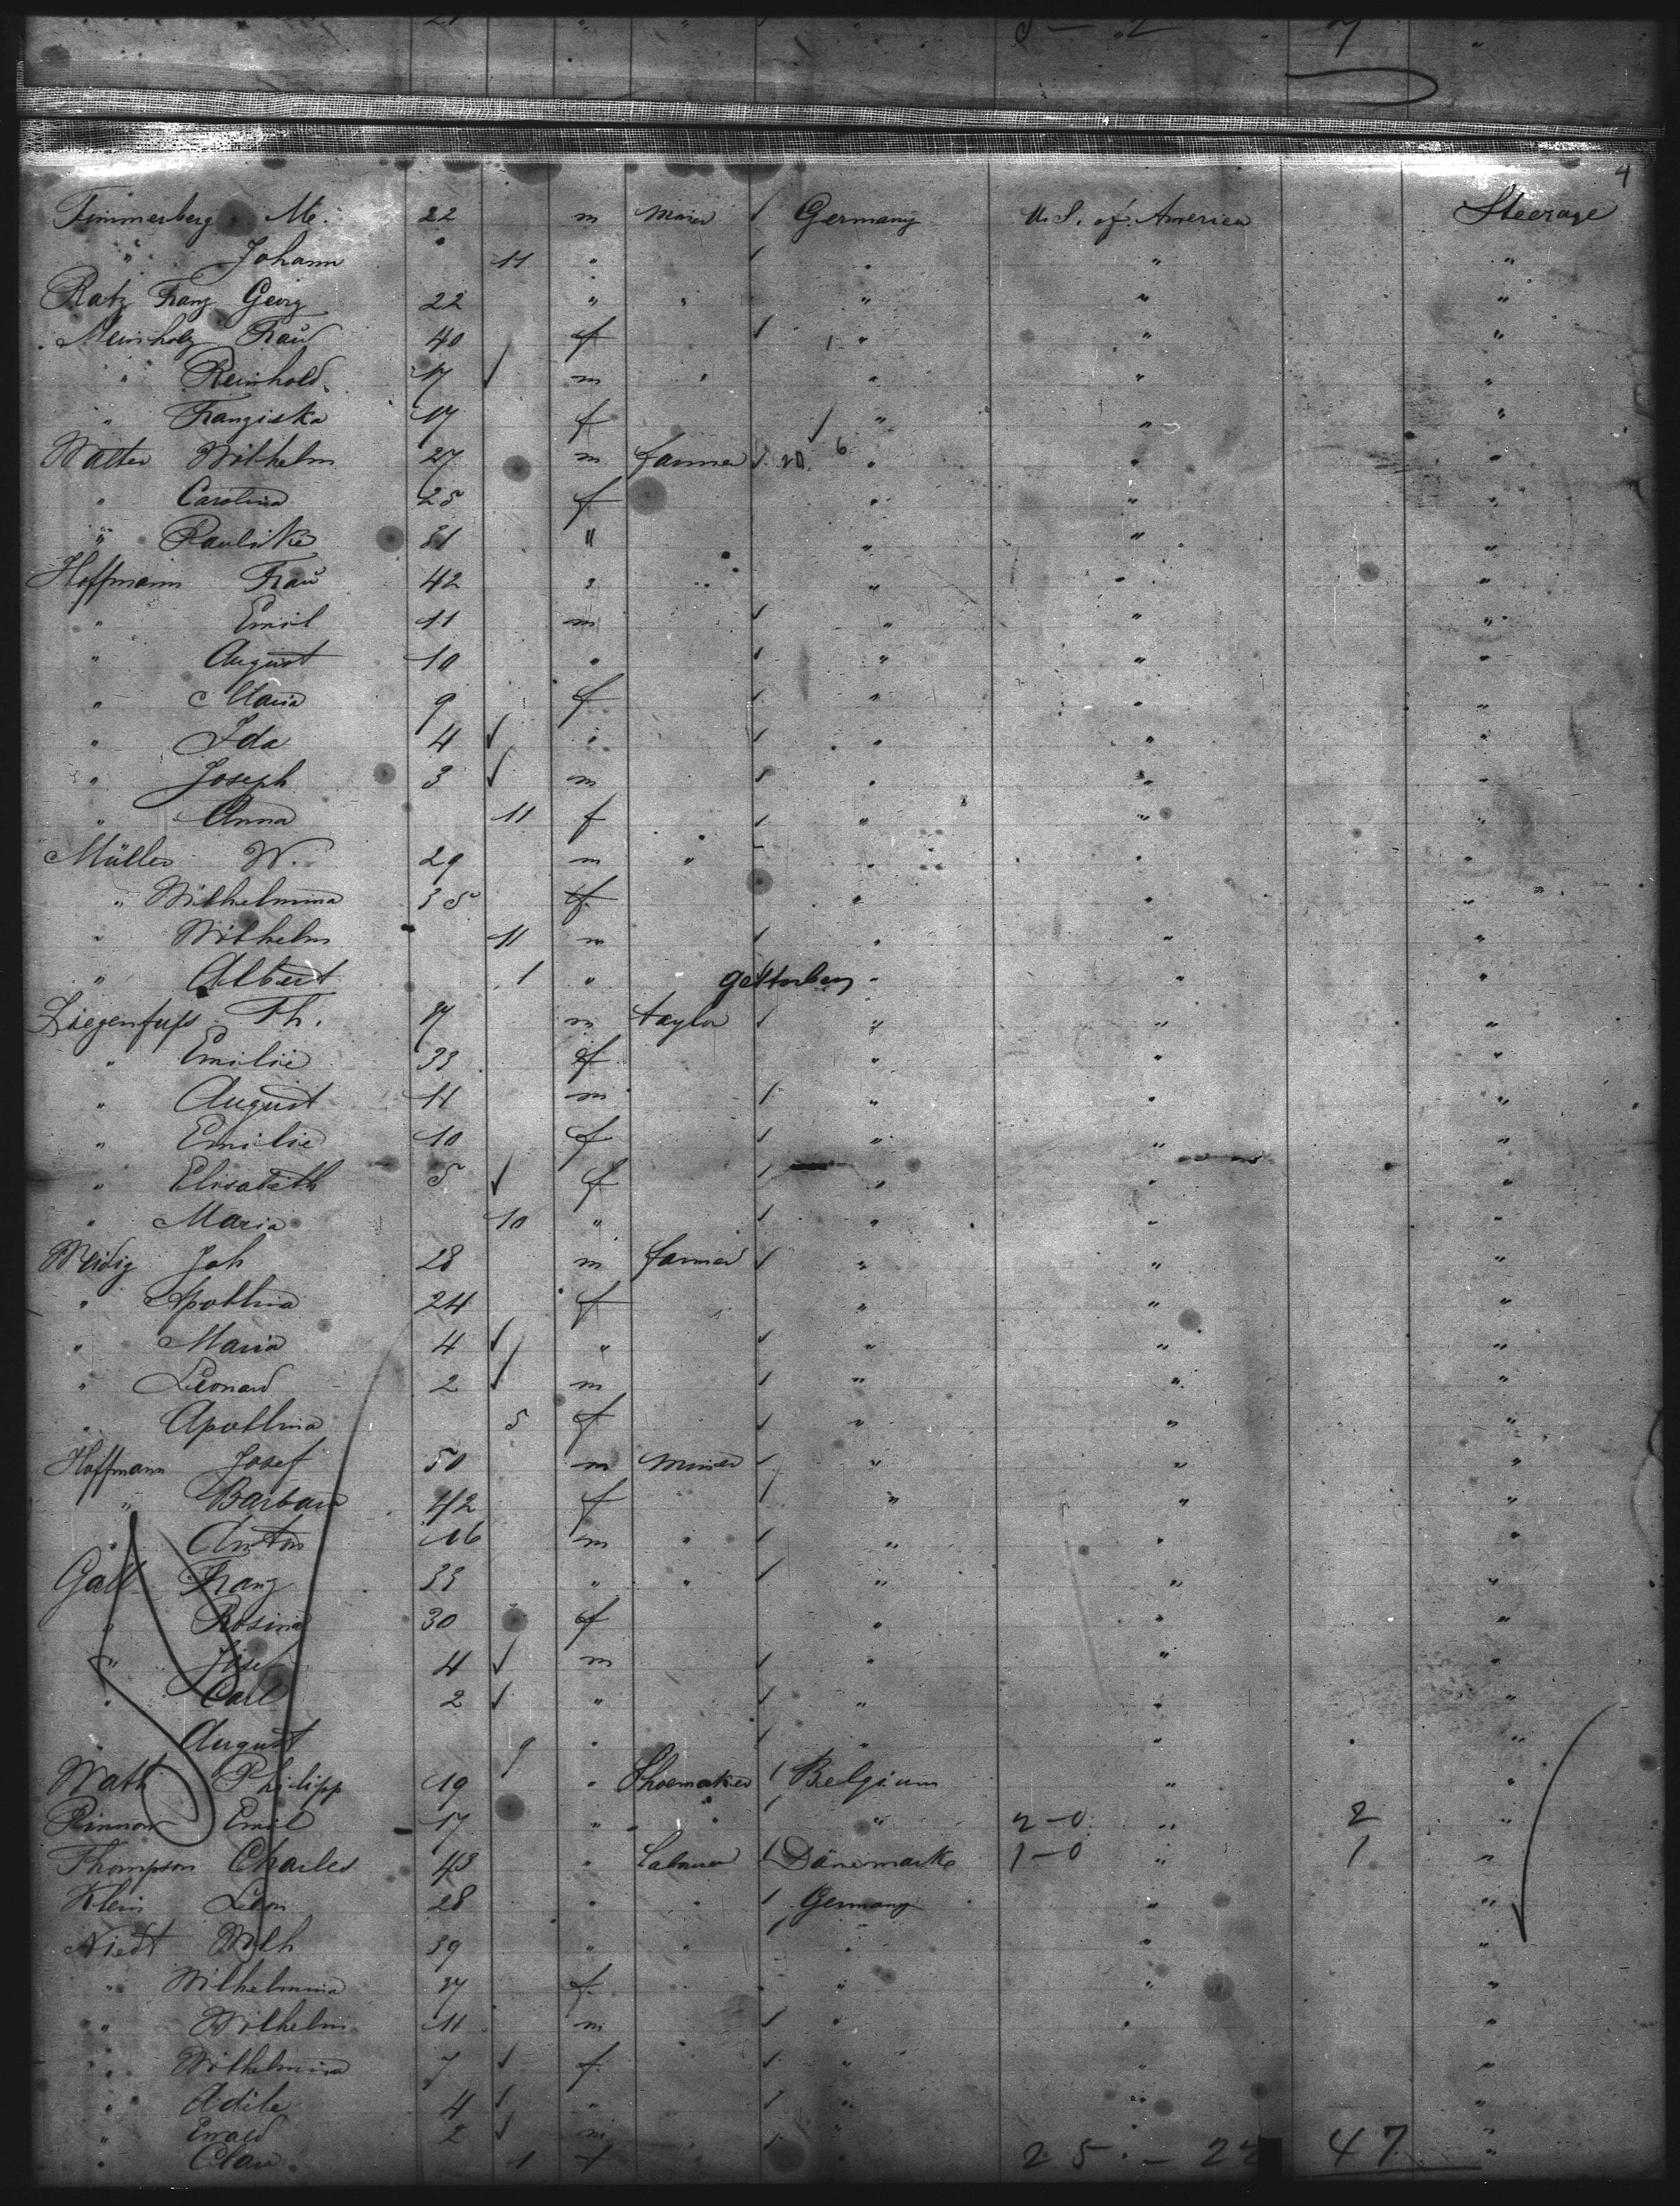 4
Timmerberg M. 22 m Miner ✓ Germany U.S. of America Steerage
" Johann 11 " ✓ " " "
Ratz Franz Georg 22 " " " " "
Meinholz Frau 40 f ✓ " " "
" Reinhold 17 ✓ m " " " "
" Franziska 17 f " " "
Walter Wilhelm 27 m farmer ✓ 20. 6 " " "
" Carolina 25 f " " "
" 31 " " " "
Hoffmann Frau 42 " " " "
" Emil 11 m ✓ " " "
" August 10 " ✓ " " "
" Maria 9 f ✓ " " "
" Ida 4 ✓ " ✓ " " "
" Joseph 3 ✓ m ✓ " " "
" Anna 11 f ✓ " " "
Müller W. 29 m " " " "
" Wilhelmina 35 f " " "
" Wilhelm 11 m ✓ " " "
" Albert 1 " gestorben " " "
Th. m taylor ✓ " " "
" Emilie 33 f " " "
" August 11 m ✓ " " "
" Emilie 10 f ✓ " " "
" Elisabeth 5 ✓ f ✓ " " "
" Maria 10 " ✓ " " "
Weidig Joh 28 m farmer ✓ " " "
" Apollina 24 f " " "
" Maria 4 ✓ " ✓ " " "
" Leonard 2 ✓ m ✓ " " "
" Apollina 5 f ✓ " " "
Hoffmann Josef 50 m Miner ✓ " " "
" Barbara 42 f ✓ " " "
" Anton 16 m " ✓ " " "
Gall Franz 33 " " ✓ " " "
" Rosina 30 f " " "
" Josef 4 ✓ m ✓ " " "
" Carl 2 ✓ " ✓ " " "
" August 9 " ✓ " " "
Wath Philipp 19 " Shoemaker ✓ Belgium " "
Emil 17 " " " 2-0 " 2 "
Thompson Charles 43 " Labourer ✓ Dänemark 1-0 " 1 "
Klein Leon 28 " " ✓ Germany " "
Niedt Wilh 39 " " " " "
" Wilhelmina f " " "
" Wilhelm 11 m ✓ " " "
" Wilhelmina 7 ✓ f ✓ " " "
" Adele 4 ✓ " ✓ " " "
" Ewald 2 ✓ m " "
" Clara 1 f ✓ " 25 - 22 47 "